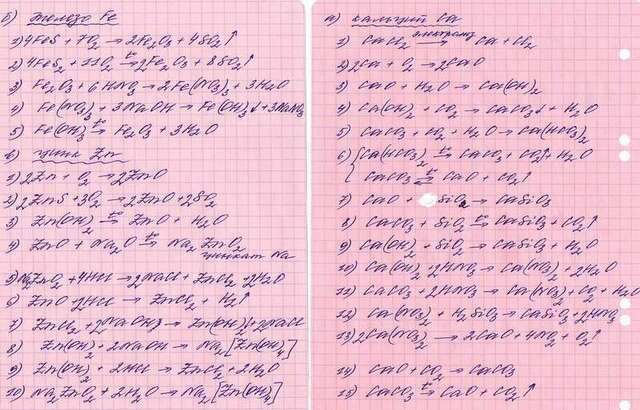 б) железо Fe
1) 4FeS + 7O₂ → 2Fe₂O₃ + 4SO₂↑
2) 4FeS₂ + 11O₂ →t° 2Fe₂O₃ + 8SO₂↑
3) Fe₂O₃ + 6HNO₃ → 2Fe(NO₃)₃ + 3H₂O
4) Fe(NO₃)₃ + 3NaOH → Fe(OH)₃↓ + 3NaNO₃
5) Fe(OH)₃ →t° Fe₂O₃ + 3H₂O
в) цинк Zn
1) 2Zn + O₂ → 2ZnO
2) 2ZnS + 3O₂ → 2ZnO + 2SO₂
3) Zn(OH)₂ →t° ZnO + H₂O
4) ZnO + Na₂O →t° Na₂ZnO₂
цинкат Na
5) Na₂ZnO₂ + 4HCl → 2NaCl + ZnCl₂ + 2H₂O
6) ZnO + 2HCl → ZnCl₂ + H₂↑
7) ZnCl₂ + 2NaOH → Zn(OH)₂↓ + 2NaCl
8) Zn(OH)₂ + 2NaOH → Na₂[Zn(OH)₄]
9) Zn(OH)₂ + 2HCl → ZnCl₂ + 2H₂O
10) Na₂ZnO₂ + 2H₂O → Na₂[Zn(OH)₄]
а) кальций Ca
1) CaCl₂ электролиз → Ca + Cl₂
2) 2Ca + O₂ → 2CaO
3) CaO + H₂O → Ca(OH)₂
4) Ca(OH)₂ + CO₂ → CaCO₃↓ + H₂O
5) CaCO₃ + CO₂ + H₂O → Ca(HCO₃)₂
6) { Ca(HCO₃)₂ →t° CaCO₃ + CO₂↑ + H₂O
CaCO₃ ⇄t° CaO + CO₂↑
7) CaO + SiO₂ → CaSiO₃
8) CaCO₃ + SiO₂ →t° CaSiO₃ + CO₂↑
9) Ca(OH)₂ + SiO₂ → CaSiO₃ + H₂O
10) Ca(OH)₂ + 2HNO₃ → Ca(NO₃)₂ + 2H₂O
11) CaCO₃ + 2HNO₃ → Ca(NO₃)₂ + CO₂ + H₂O
12) Ca(NO₃)₂ + H₂SiO₃ → CaSiO₃ + 2HNO₃
13) 2Ca(NO₃)₂ → 2CaO + 4NO₂ + O₂↑
14) CaO + CO₂ → CaCO₃
15) CaCO₃ →t° CaO + CO₂↑